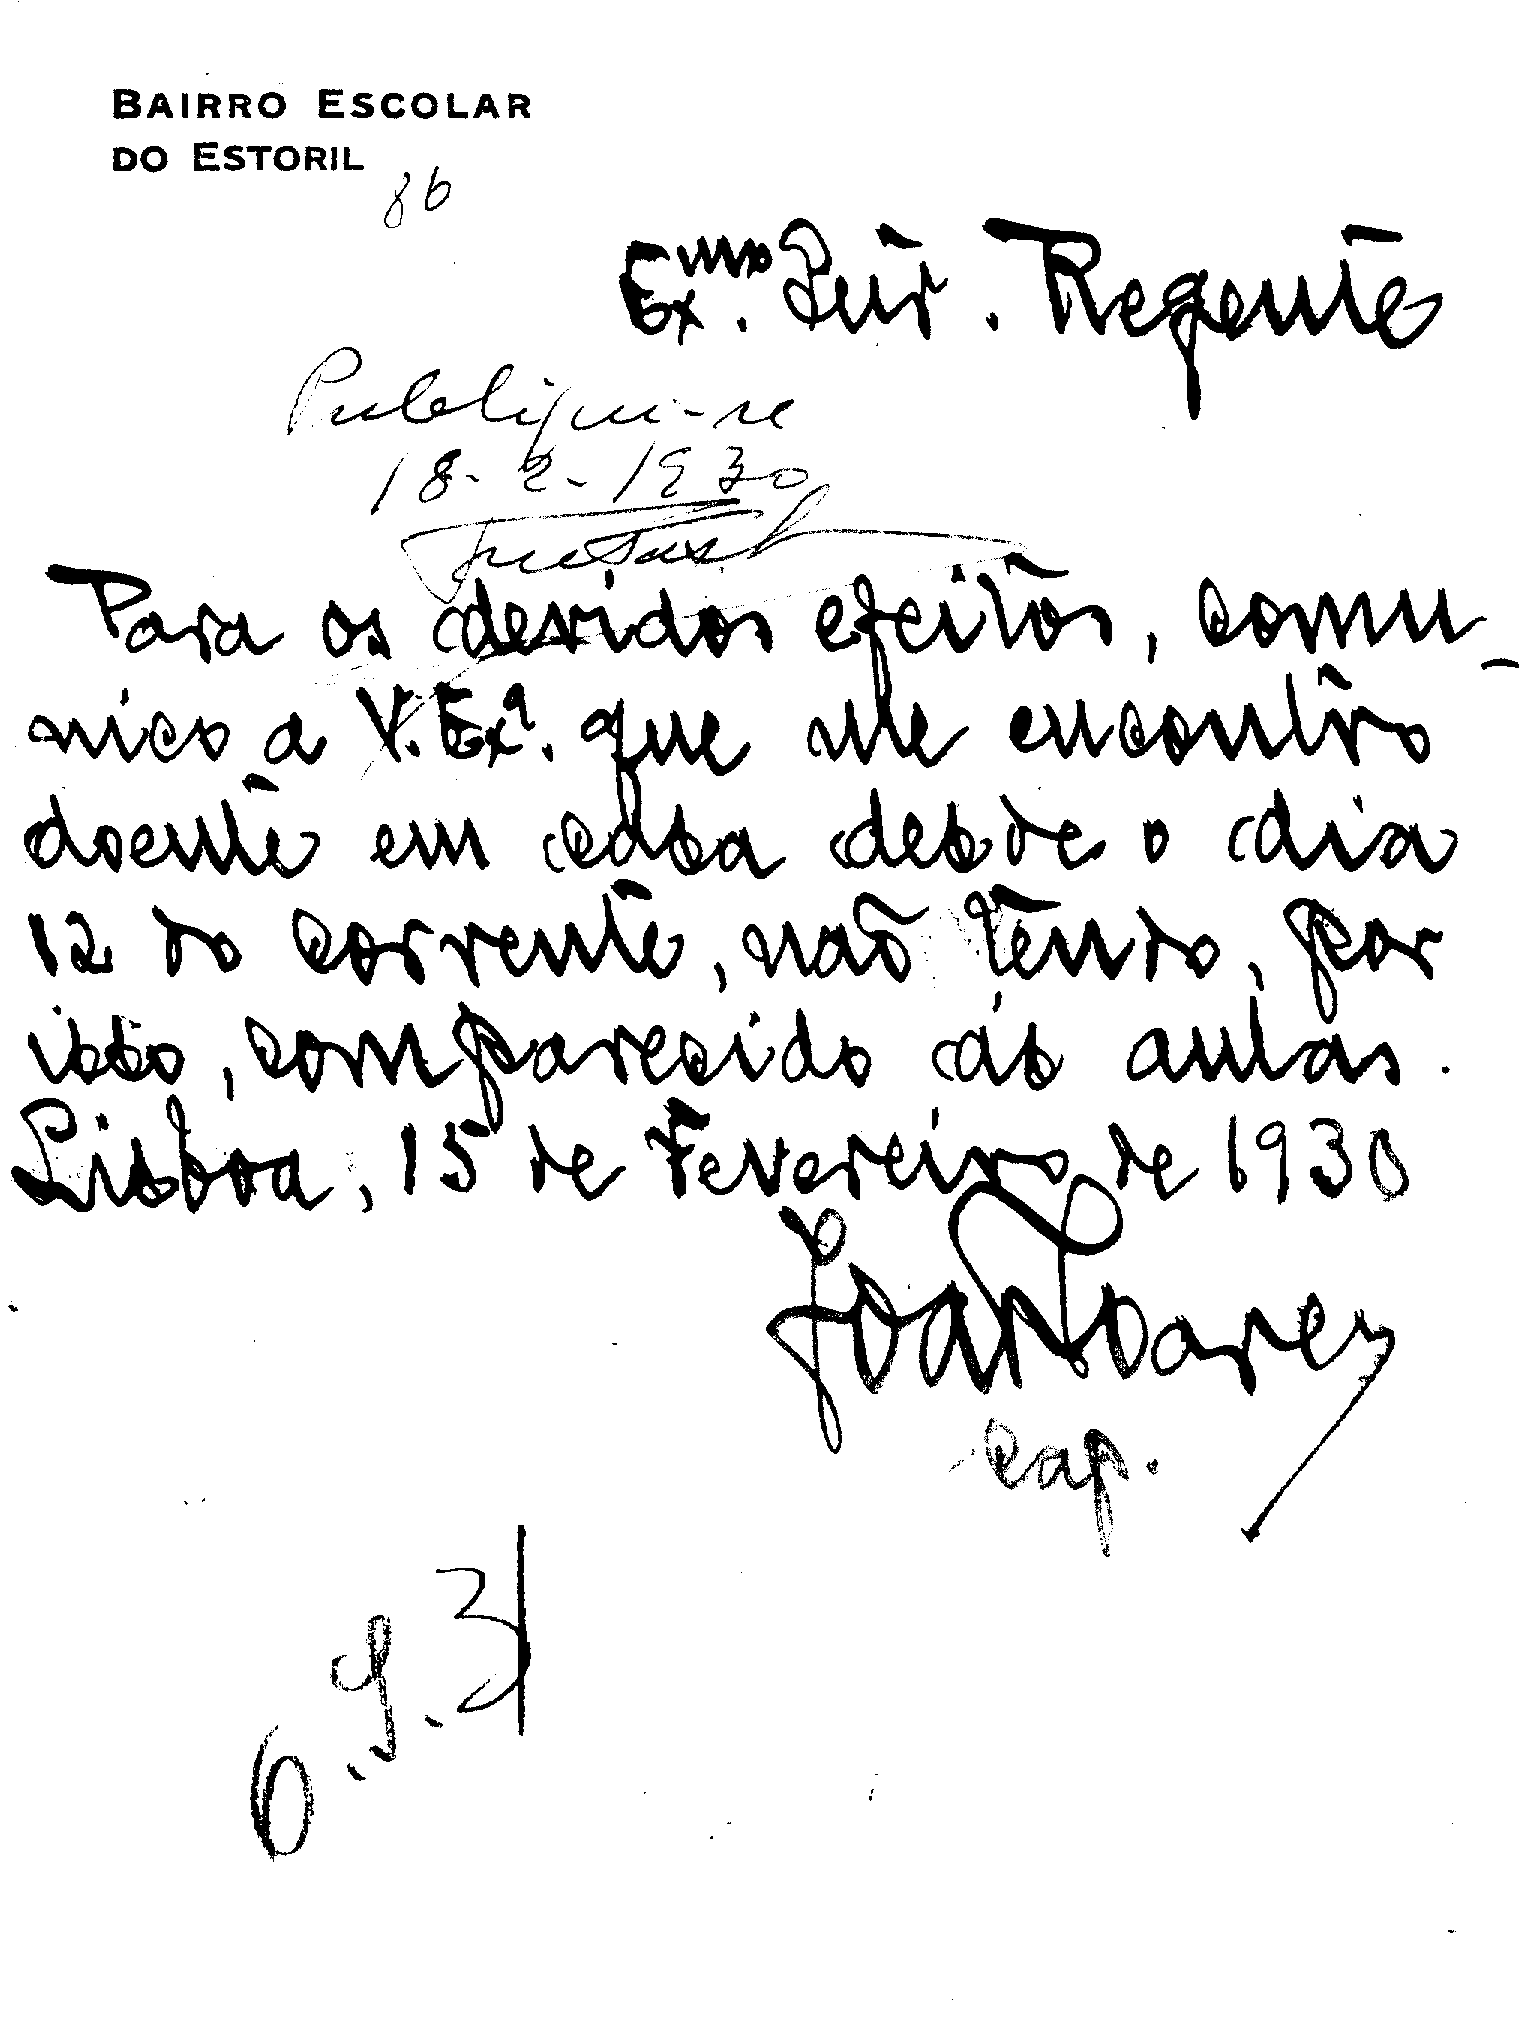 BAIRRO ESCOLAR
DO ESTORIL
86
Exmo. Snr. Regente
Publique-se
18-2-1930
Para os devidos efeitos, comu-
nico a V. Exa. que me encontro
doente em casa desde o dia
12 do corrente, não tendo, por
isso, comparecido ás aulas.
Lisboa, 15 de Fevereiro de 1930
João Soares
cap.
6.9.31